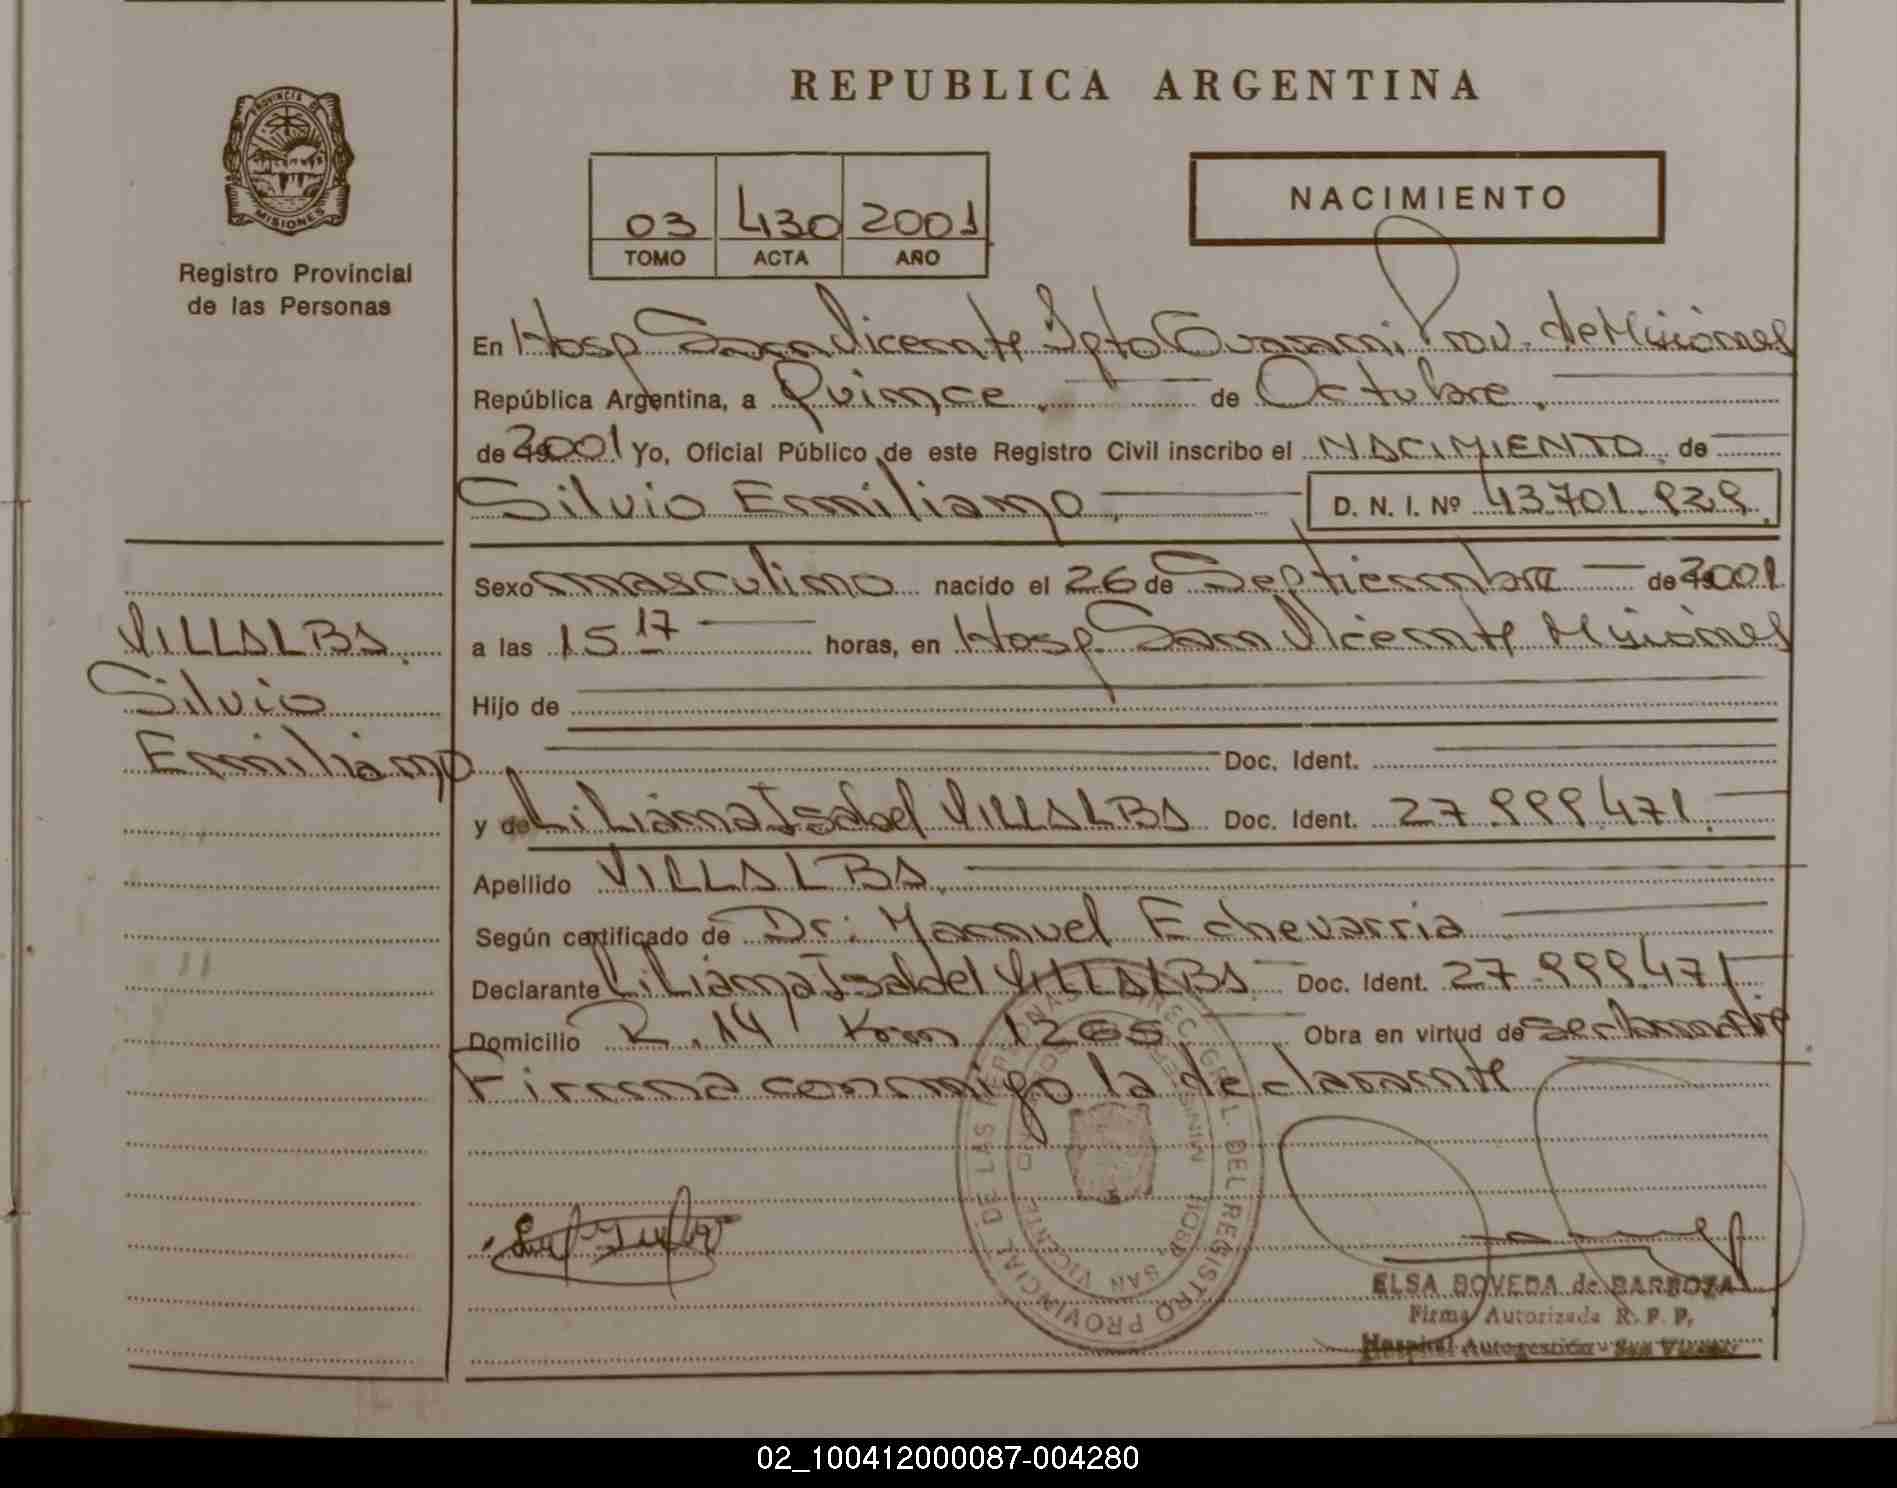 REPUBLICA ARGENTINA
PROVINCIA DE
MISIONES
Registro Provincial
de las Personas
03 430 2001
TOMO ACTA AÑO
NACIMIENTO
En Hosp San Vicente Dpto Guarani Prov. de Misiones
República Argentina, a Quince de Octubre.
de 2001 Yo, Oficial Público de este Registro Civil inscribo el NACIMIENTO de
Silvio Emiliano D. N. I. Nº 43.701.939
Sexo masculino nacido el 26 de Septiembre de 2001
a las 15 17 horas, en Hosp. San Vicente Misiones
Hijo de
Doc. Ident.
y de Liliana Isabel VILLALBA Doc. Ident. 27.999.471
Apellido VILLALBA
Según certificado de Dr: Manuel Echevarria
Declarante Liliana Isabel VILLALBA Doc. Ident. 27.999.471
Domicilio R. 14 Km 1265 Obra en virtud de ser la madre
Firma conmigo la declarante
VILLALBA
Silvio
Emiliano
DEL REGISTRO PROVINCIAL DE LAS PERSONAS
SAN VICENTE
ELSA BOVEDA de BARBOZA
Firma Autorizada R. P. P.
Hospital Autogestión - San Vicente
02_100412000087-004280